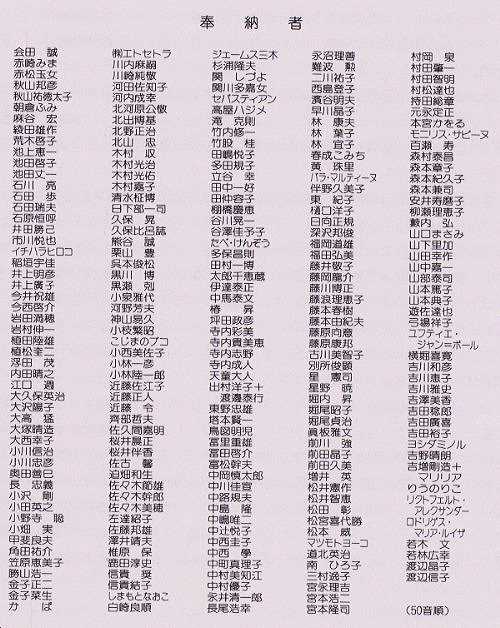 奉納者
会田 誠
赤崎みま
赤松玉女
秋山邦彦
秋山祐徳太子
朝倉ふみ
麻谷 宏
綾田雄作
荒木啓子
池上恵一
池田啓子
池田丈一
石川 亮
石田 歩
石田瑞夫
石原恒呼
井田勝己
市川悦也
イチハラヒロコ
稲垣宇佳
井上明彦
井上廣子
今井祝雄
今西啓介
岩田満穂
岩村伸一
植田陸雄
植松奎二
浮田 茂
内田晴之
江口 週
大久保英治
大沢陽子
大高 猛
大塚晴造
大西幸子
小川信治
小川忠彦
奥田善巳
長 忠義
小沢 剛
小田英之
小野寺 聡
小畑 実
甲斐良夫
角田祐介
笠原恵美子
勝山浩一
金子正二
金子菜生
か ば
㈱エトセトラ
川内麻嗣
川崎純敬
河田佐知子
河内成幸
北河原公敬
北出博基
北野正治
北山 忠
木村 収
木村光治
木村光佑
木村嘉子
清水柾博
日下部一司
久保 晃
久保比呂誌
熊谷 誠
栗山 豊
呉本俊松
黒川 博
黒瀬 剋
小泉雅代
河野芳夫
神山晃久
小枝繁昭
こじまのプコ
小西美佐子
小林一彦
小林陸一郎
近藤佐江子
近藤正人
近藤 令
斉部哲夫
佐久間嘉明
桜井晨正
桜井伴香
佐古 馨
迫畑和生
佐々木節雄
佐々木幹郎
佐々木美穂
左達紹子
佐藤邦雄
澤井靖夫
椎原 保
鹿田淳史
信貴 奨
信貴結子
しまもとなおこ
白崎良順
ジェームス三木
杉浦隆夫
関 しづよ
関川多嘉女
セバスティアン
高屋ハジメ
滝 克則
竹内修一
竹股 桂
田嶋悦子
多田規子
立谷 幸
田中一好
田仲容子
棚橋慶恵
谷川晃一
谷澤佳予子
たべ・けんぞう
多保昌則
田村一博
太郎千恵蔵
伊達泰正
中馬泰文
椿 昇
坪田政彦
寺内彩美
寺内貴美恵
寺内志野
寺内成人
天童大人
出村洋子＋
渡邊泰行
東野忠雄
塔本賢一
鳥図明児
富里重雄
富田啓介
富松幹夫
中岡慎太郎
中川佳宣
中路規夫
中島 隆
中嶋唯二
中辻悦子
中西圭子
中西 學
中町真理子
中村美知江
中村優子
永井清一郎
長尾浩幸
永沼理善
難波 勲
二川祐子
西島登子
濱谷明夫
早川晶子
林 康夫
林 葉子
林 宜子
春成こみち
黄 珠里
パラ・マルティーヌ
伴野久美子
東 紀子
樋口洋子
日向正規
深沢邦俊
福岡道雄
福田弘美
藤井敬子
藤岡龍介
藤川博正
藤浪理恵子
藤本春樹
藤本由紀夫
藤原向意
藤原康邦
古川美智子
別所俊顕
星 憲司
星野 暁
堀内 昇
堀尾昭子
堀尾貞治
眞板雅文
前川 強
前田晶子
前田久美
増井 英
松井憲作
松北智恵
松田 彰
松宮喜代勝
マツモトヨーコ
道北英治
南 ひろ子
三村逸子
宮永理吉
宮本浩二
宮本隆司
村岡 泉
村田肇一
村田智明
村松達也
持田総章
元永定正
本宮かをる
モニリス・サビーヌ
百瀬 寿
森村泰昌
森本章子
森本紀久子
森本兼司
安井寿磨子
柳瀬理恵子
籔内 弘
山口まさみ
山下里加
山田幸作
山中嘉一
山部泰司
山本篤子
山本典子
遊佐達也
弓場祥子
ユフティエ・
ジャン＝ポール
横堀喜寛
吉川和彦
吉川恵子
吉川雅史
吉澤美香
吉田稔郎
吉田廣喜
吉田裕子
ヨシダミノル
吉野晴朗
吉増剛造＋
マリリア
りうのりこ
リクトフェルト・
アレクサンダー
ロドリゲス・
マリア・ルイザ
若木 文
若林広幸
渡辺晶子
渡辺信子
（50音順）